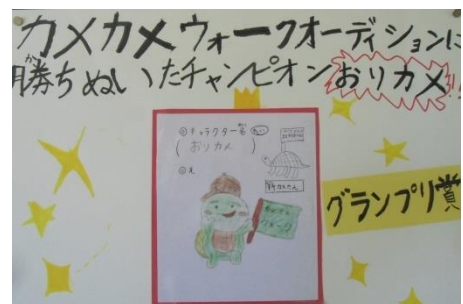 カメカメウォークオーディションに
勝ちぬいたチャンピオンおりカメ!!
◎キャラクター名
(おりカメ)
◎え
グランプリ賞